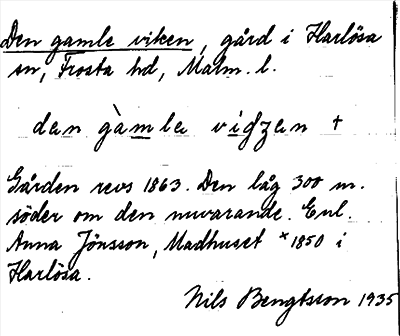 Den gamle viken, gård i Harlösa
sn, Frosta hd, Malm. l.
den gàmle vigzen †
Gården revs 1863. Den låg 300 m.
söder om den nuvarande. Enl.
Anna Jönsson, Madhuset * 1850 i
Harlösa.
Nils Bengtsson 1935